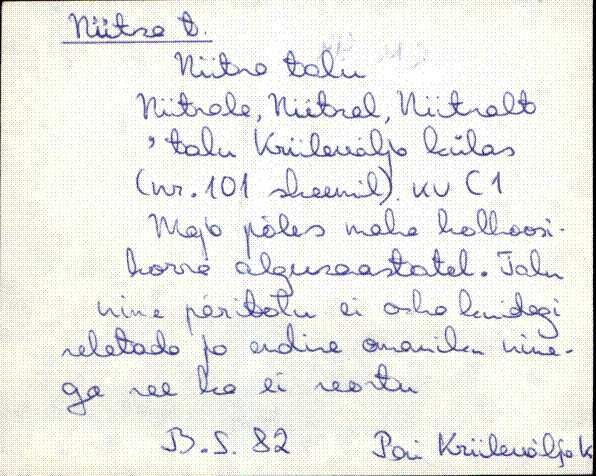 Niitra t.
Niitra talu
Niitrale, Niitral, Niitralt
, talu Kriilevälja külas
(nr. 101 skeemil). KV C1
Maja põles maha kolhoosi-
korra algusaastatel. Talu
nime päritolu ei oska kuidagi
seletada ja endise omaniku nime-
ga see ka ei seostu
B.S. 82 Pai Kriilevälja k